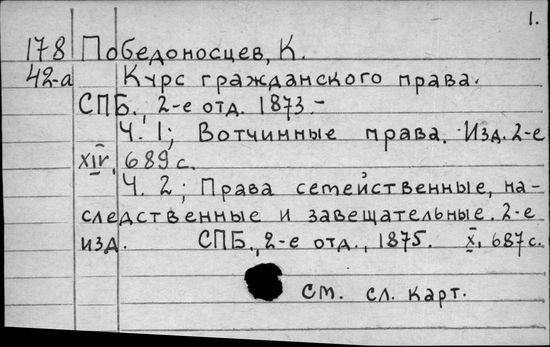 1.
178 Победоносцев, К.
42-а Курс гражданского права.
СПБ., 2-е отд. 1873.-
Ч. 1; Вотчинные права. Изд. 2-е
XIV, 689 с.
Ч. 2; Права семейственные, на-
следственные и завещательные. 2-е
изд. СПБ., 2-е отд., 1875. X, 687 с.
см. сл. карт.